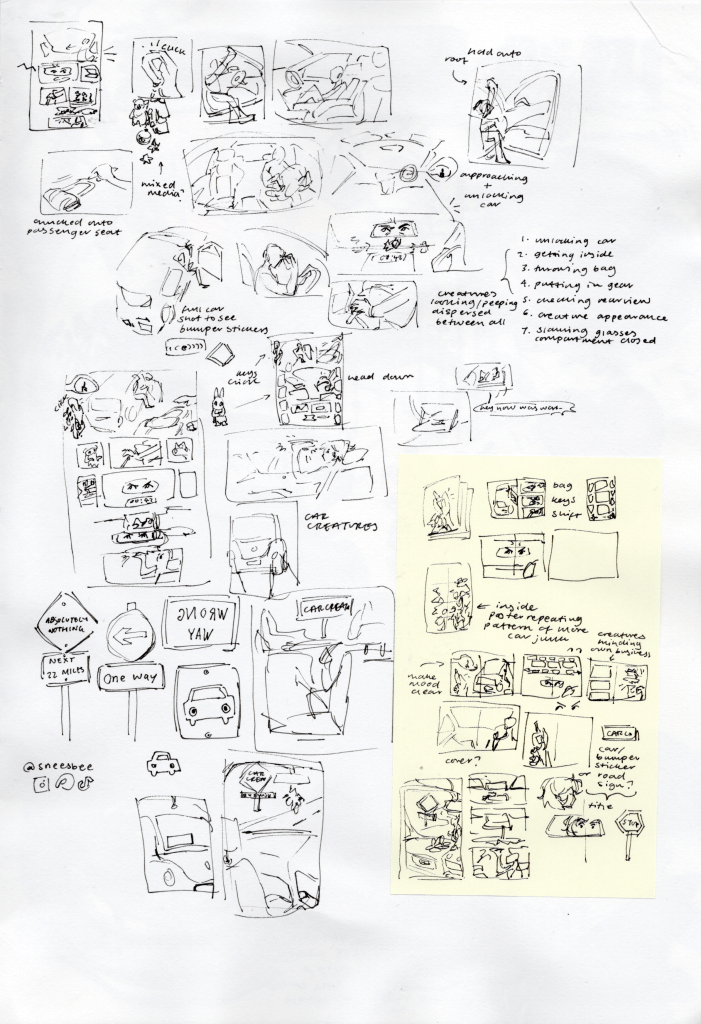 CLICK
hold onto
roof
mixed
media?
chucked onto
passenger seat
approaching
+
unlocking
car
1. unlocking car
2. getting inside
3. throwing bag
4. putting in gear
5. checking rearview
6. creature appearance
7. slamming glasses
compartment closed
creatures
looking/peeping
dispersed
between all
full car
shot to see
bumper stickers
keys
click
head down
CAR
CREATURES
bag
keys
shift
inside
poster repeating
pattern of more
car junk
creatures
minding
own business
make
mood
clear
cover?
car/
bumper
sticker
or road
sign?
title
STOP
ABSOLUTELY
NOTHING
NEXT
22 MILES
One way
WRONG
WAY
CAR CREW
CAR
CREW
@sneesbee